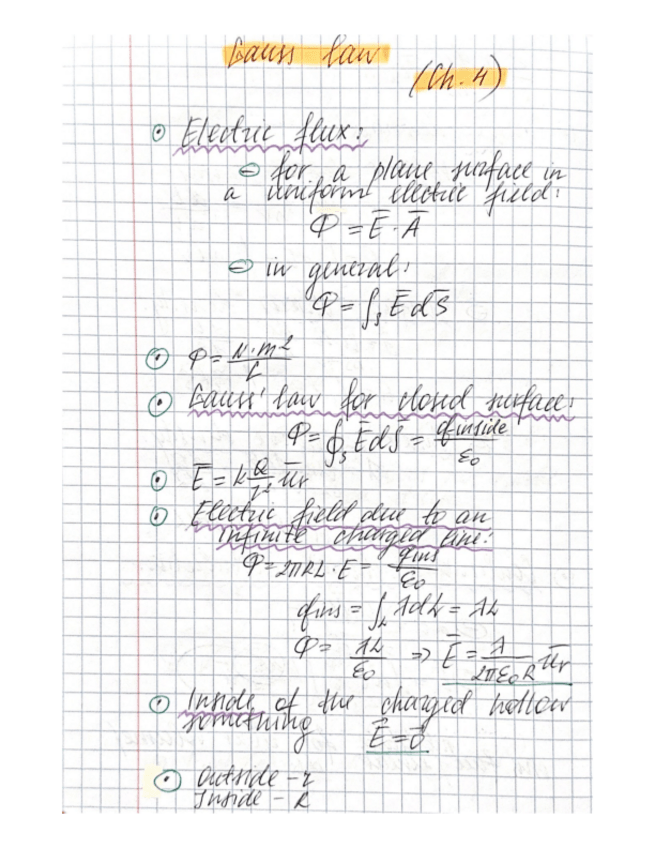 Gauss law
(Ch. 4)
Electric flux:
for a plane surface in
a uniform electric field:
Φ = E̅ · A̅
in general:
Φ = ∫ₛ E̅ dS̅
Φ = N·m²/C
Gauss' law for closed surface:
Φ = ∮ₛ E̅ dS̅ = q inside / ε₀
E̅ = k Q/r² u̅ᵣ
Electric field due to an
infinite charged line:
Φ = 2πRL · E = qins / ε₀
qins = ∫_L λdL = λL
Φ = λL/ε₀ ⇒ E̅ = λ/2πε₀R u̅ᵣ
Inside of the charged hollow
something E̅ = 0̅
Outside – r
Inside – R